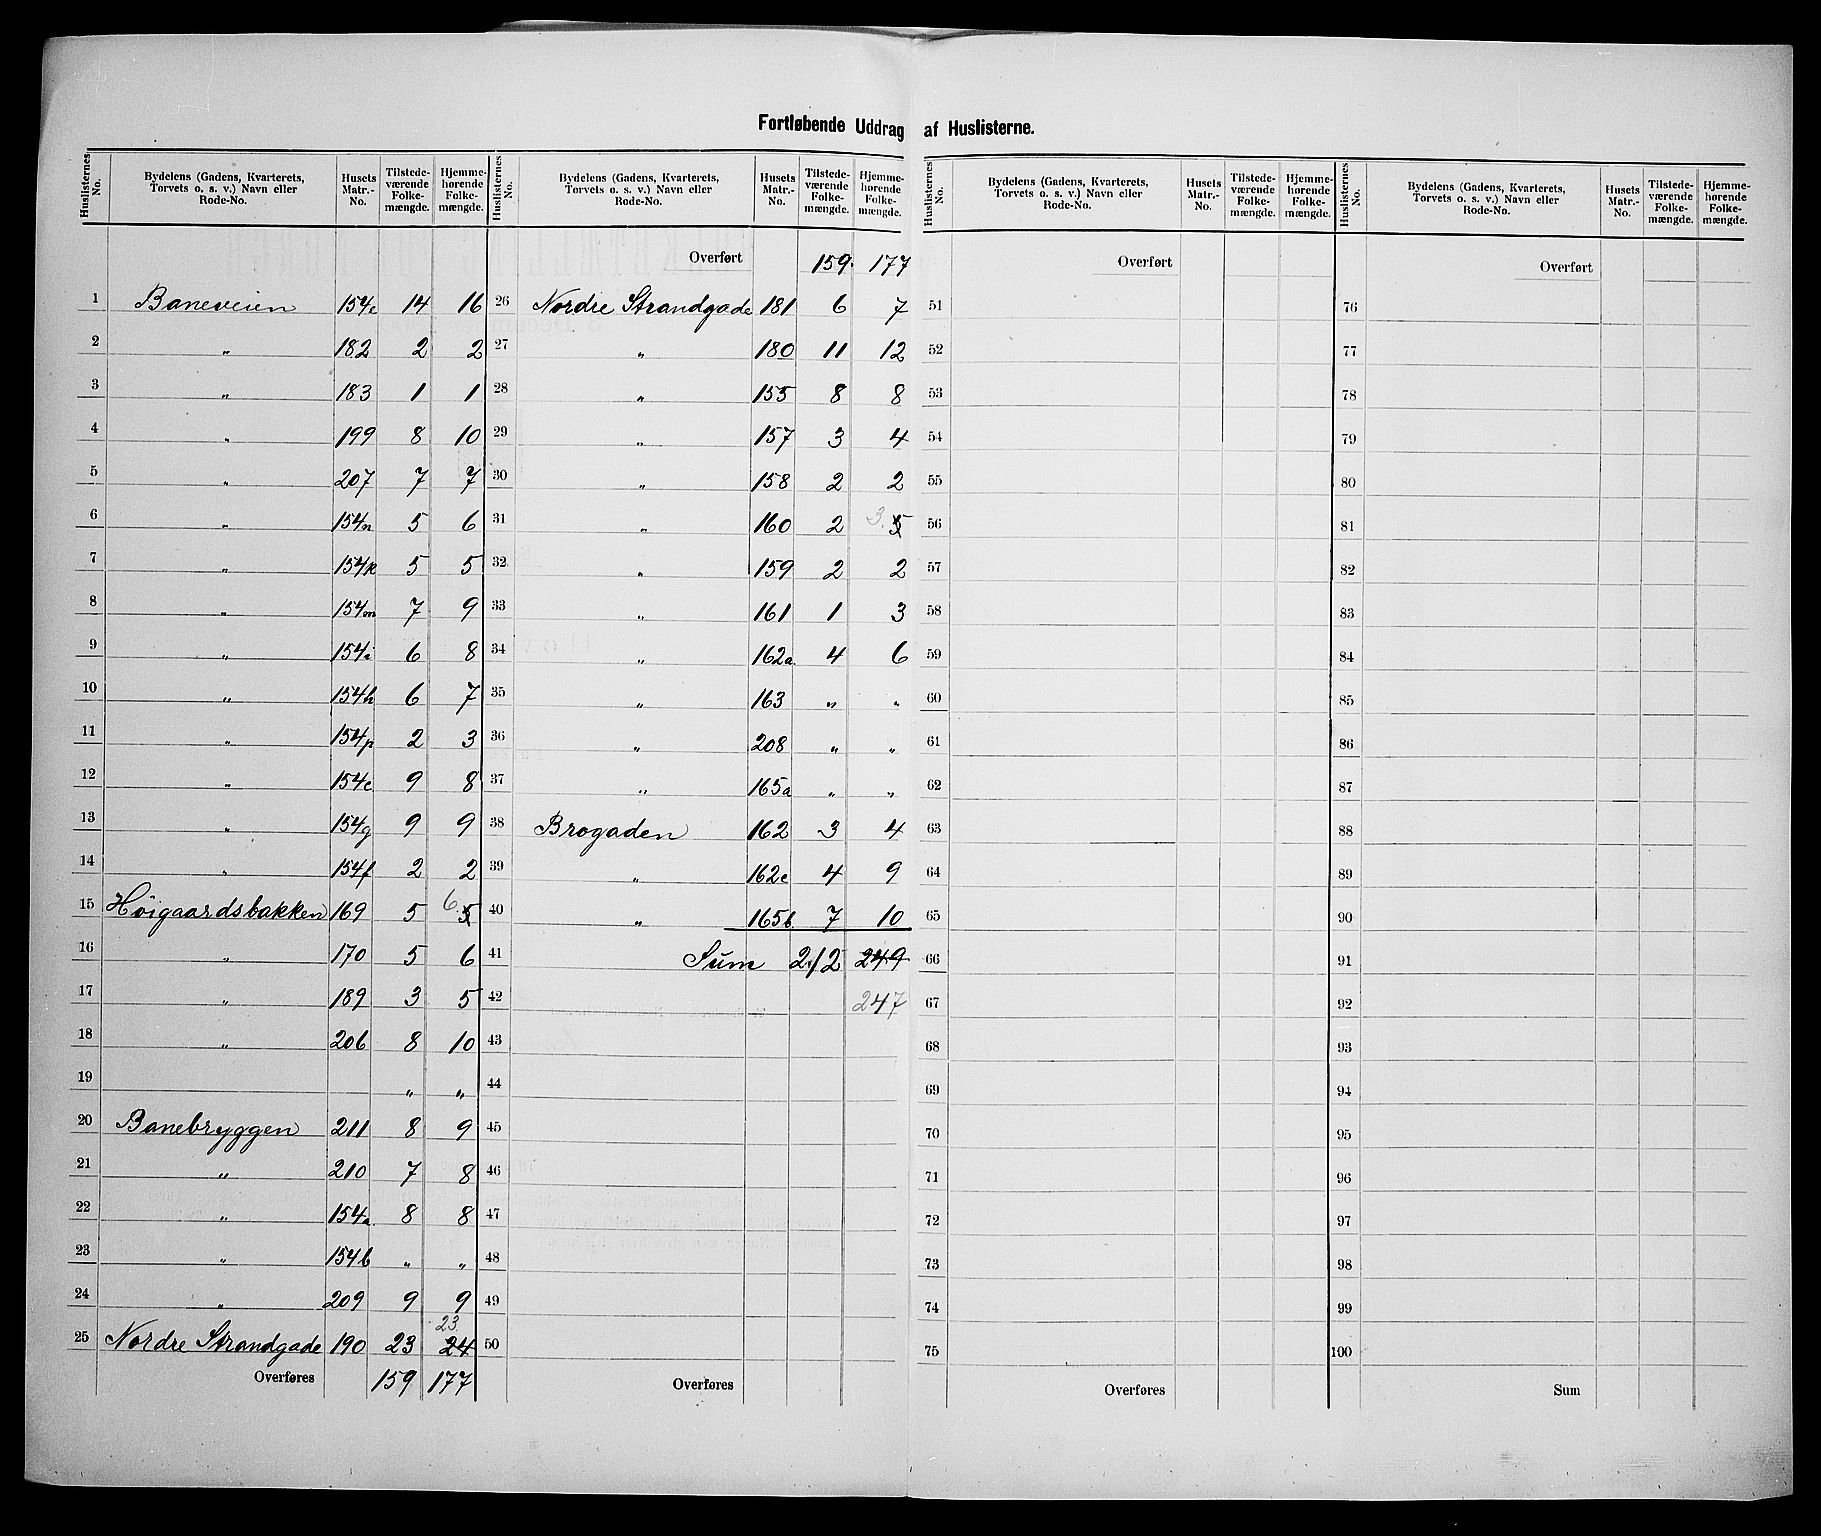 Fortløbende Uddrag af Huslisterne.
Huslisternes No. | Bydelens (Gadens, Kvarterets, Torvets o. s. v.) Navn eller Rode-No. | Husets Matr.-No. | Tilstedeværende Folkemængde. | Hjemmehørende Folkemængde.
1 Baneveien 154e 14 16
2 „ 182 2 2
3 „ 183 1 1
4 „ 199 8 10
5 „ 207 7 7
6 „ 154n 5 6
7 „ 154k 5 5
8 „ 154m 7 9
9 „ 154i 6 8
10 „ 154h 6 7
11 „ 154p 2 3
12 „ 154c 9 8
13 „ 154g 9 9
14 „ 154f 2 2
15 Høigaardsbakken 169 5 6. 5
16 „ 170 5 6
17 „ 189 3 5
18 „ 206 8 10
19 „ „
20 Banebryggen 211 8 9
21 „ 210 7 8
22 „ 154a 8 8
23 „ 154b „ „
24 „ 209 9 9
25 Nordre Strandgade 190 23 23 24
Overføres 159 177
Huslisternes No. | Bydelens (Gadens, Kvarterets, Torvets o. s. v.) Navn eller Rode-No. | Husets Matr.-No. | Tilstedeværende Folkemængde. | Hjemmehørende Folkemængde.
Overført 159. 177
26 Nordre Strandgade 181 6 7
27 „ 180 11 12
28 „ 155 8 8
29 „ 157 3 4
30 „ 158 2 2
31 „ 160 2 3. 5
32 „ 159 2 2
33 „ 161 1 3
34 „ 162a 4 6
35 „ 163 „ „
36 „ 208 „ „
37 „ 165a „ „
38 Brogaden 162 3 4
39 „ 162c 4 9
40 „ 165b 7 10
41 Sum 212 249
42 247
43
44
45
46
47
48
49
50
Overføres
Huslisternes No. | Bydelens (Gadens, Kvarterets, Torvets o. s. v.) Navn eller Rode-No. | Husets Matr.-No. | Tilstedeværende Folkemængde. | Hjemmehørende Folkemængde.
Overført
51
52
53
54
55
56
57
58
59
60
61
62
63
64
65
66
67
68
69
70
71
72
73
74
75
Overføres
Huslisternes No. | Bydelens (Gadens, Kvarterets, Torvets o. s. v.) Navn eller Rode-No. | Husets Matr.-No. | Tilstedeværende Folkemængde. | Hjemmehørende Folkemængde.
Overført
76
77
78
79
80
81
82
83
84
85
86
87
88
89
90
91
92
93
94
95
96
97
98
99
100
Sum